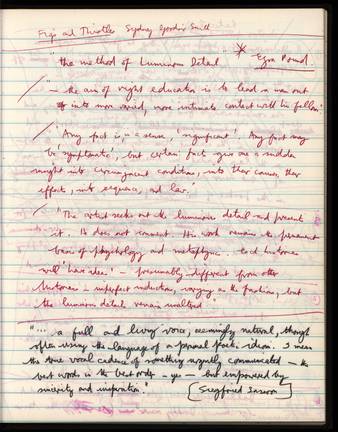 Figs and Thistles Sydney Goodsir Smith
"the method of Luminous Detail" * Ezra Pound.
"— the aim of right education is to lead a man out
into more varied, more intimate contact with his fellows"
'Any fact is, in a sense, 'significant'. Any fact may
be 'symptomatic', but certain facts give one a sudden
insight into circumjacent conditions, into their causes, their
effects, into sequence, and law.'
"The artist seeks out the luminous detail and presents
it. He does not comment. His work remains the permanent
basis of psychology and metaphysics. Each historian
will 'have ideas' — presumably different from other
historians — imperfect inductions, varying as the fashions, but
the luminous details remain unaltered."
"... a full and living voice, seemingly natural, though
often using the language of a personal poetic idiom. I mean
the true vocal cadence of something urgently communicated — the
best words in the best order — yes — but empowered by
sincerity and inspiration."
[Siegfried Sassoon]